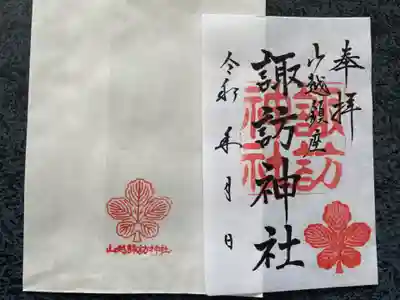 奉拝
山越鎮座
諏訪神社
諏訪神社
令和 年 月 日
山越諏訪神社